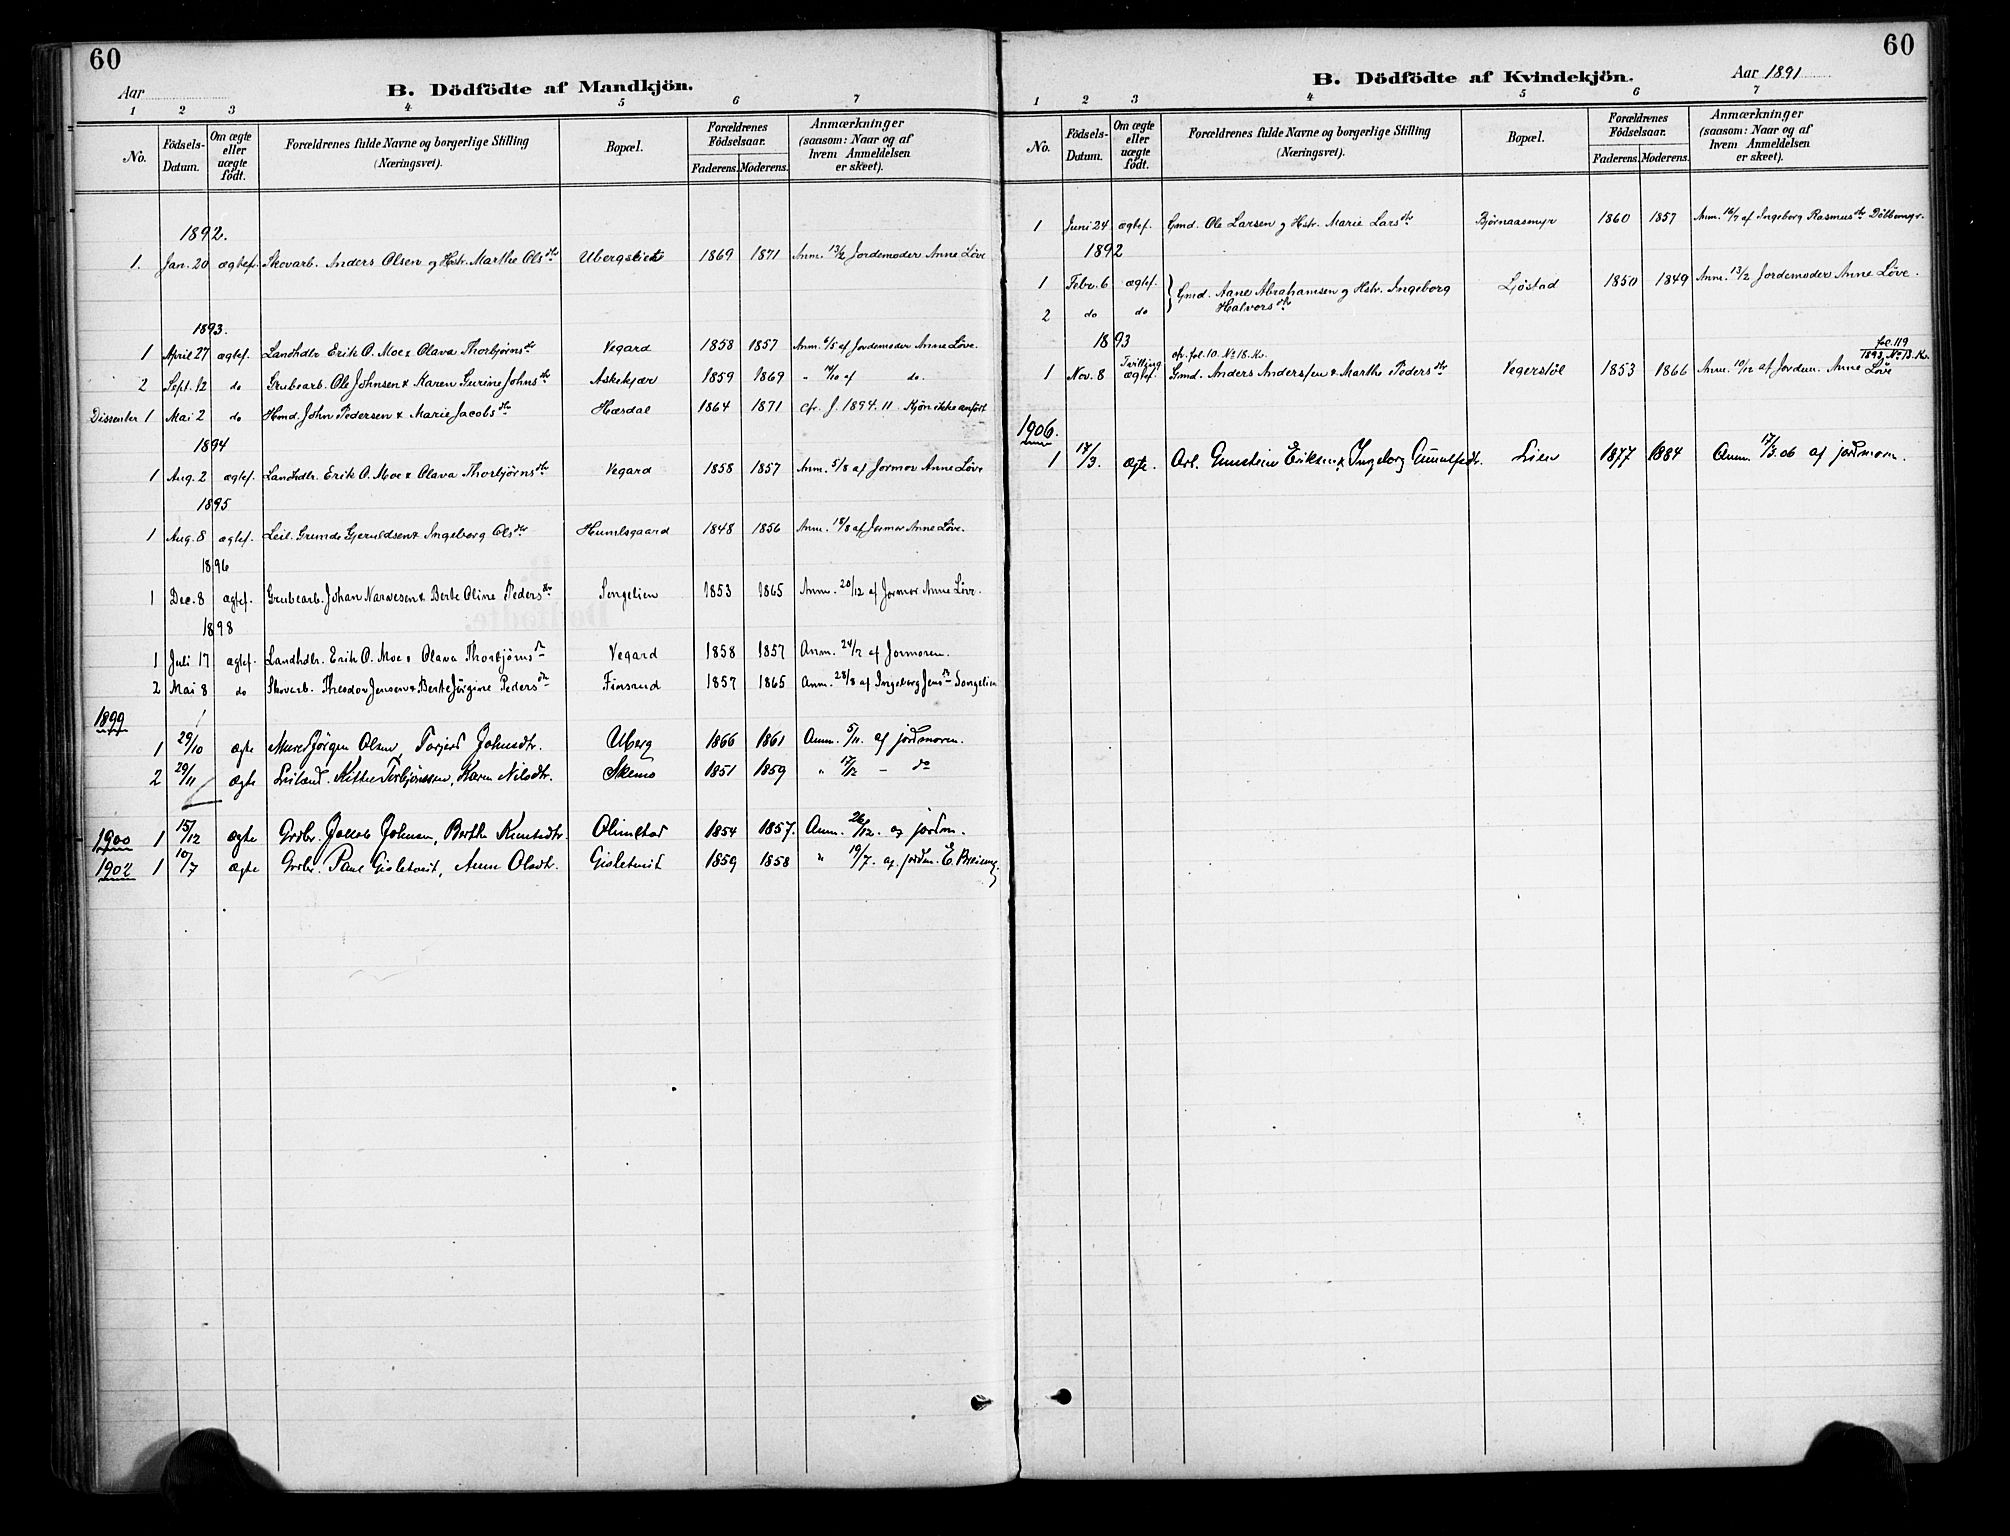 60
Aar
B. Dödfödte af Mandkjön.
1 2 3 4 5 6 7
No. Födsels-Datum. Om ægte eller uægte födt. Forældrenes fulde Navne og borgerlige Stilling (Næringsvei). Bopæl. Forældrenes Födselsaar. Faderens. Moderens. Anmærkninger (saasom: Naar og af hvem Anmeldelsen er skeet).
1892.
1. Jan. 20 ægtef. Skovarb. Anders Olsen og Hstr. Marthe Olsdtr Ubergsliet 1869 1871 Anm. 13/2 Jordemoder Anne Löve
1893.
1 April 27 ægtef. Landhdlr. Erik O. Moe & Olava Thorbjørnsdtr Vegard 1858 1857 Anm. 6/5 af Jordemoder Anne Löve.
2 Sept. 12 do Grubearb. Ole Johnsen & Karen Gurine Johnsdtr Askekjær 1859 1869 " /10 af do.
Dissenter 1 Mai 2 do Hmd. John Pedersen & Marie Jacobsdtr Hæsdal 1864 1871 cfr. J. 1894. 11 Kjön ikke anfört
1894
1 Aug. 2 ægtef. Landhdlr. Erik O. Moe & Olava Thorbjørnsdtr Vegard 1858 1857 Anm. 5/8 af Jormor Anne Löve
1895
1 Aug. 8 ægtef. Leil. Grunde Gjeruldsen & Ingeborg Olsdtr Humlsgaard 1848 1856 Anm. 18/8 af Jormor Anne Löve.
1896
1 Dec. 8 ægtef. Grubearb. Johan Narvesen & Berte Oline Pedersdtr Songelien 1853 1865 Anm. 20/12 af Jormor Anne Löve.
1898
1 Juli 17 ægtef. Landhdlr. Erik O. Moe & Olava Thorbjørnsdr Vegard 1858 1857 Anm. 24/7 af Jormoren.
2 Mai 8 do Skovarb. Theodor Jensen & Berte Jörgine Pedersdtr Finsrud 1857 1865 Anm. 28/8 af Ingeborg Jensdr Songelien
1899
1 29/10 ægte Murer Jörgen Olsen, Torjerd Johnsdtr. Uberg 1866 1861 Anm. 5/11. af jordmoren.
2 29/11 ægte Leiland. Kittel Torbjørnssen, Karen Nilsdtr. Skemo 1851 1859 " 17/12 – do
1900 1 15/12 ægte Grdbr. Jakob Johnsen, Berthe Knutsdtr. Olimstad 1854 1857. Anm. 26/12. ag jordm.
1902 1 10/7 ægte Grdbr. Paul Gisletveit, Anne Olsdtr. Gisletveit 1859 1858 " 19/7. af. jordm. E.
60
B. Dödfödte af Kvindekjön.
Aar 1891
1 2 3 4 5 6 7
No. Födsels-Datum. Om ægte eller uægte födt. Forældrenes fulde Navne og borgerlige Stilling (Næringsvei). Bopæl. Forældrenes Födselsaar. Faderens. Moderens. Anmærkninger (saasom: Naar og af hvem Anmeldelsen er skeet).
1 Juni 24 ægtef. Gmd. Ole Larsen og Hstr. Marie Larsdtr Bjørnaasmyr 1860 1857 Anm. 16/7 af Ingeborg Rasmusdtr Dölbomyr.
1892
1 Febr. 6 ægtef. Gmd. Aane Abrahamsen og Hstr. Ingeborg Ljöstad 1850 1849 Anm. 13/2 Jordemoder Anne Löve.
2 do do Halvorsdtr
1893
cfr. fol. 10. No 18. Kv. fol. 119
Tvilling 1893, No 13. Kv.
1 Nov. 8 ægtef. Gmd. Anders Anderssen & Marthe Pedersdtr Vegerstöl 1853 1866 Anm. 10/12 af Jordm. Anne Löve
1906.
1 17/3. ægte. Arb. Gunstein Eriksen & Ingeborg Gunulfsdtr. Lien 1877 1884 Anm. 17/3. 06 af jordmoren.